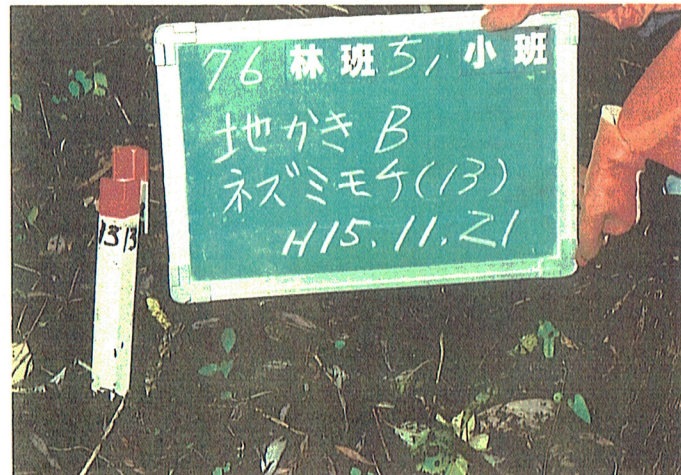 76 林班 ち1 小班
地かき B
ネズミモチ(13)
H15.11.21
13
13